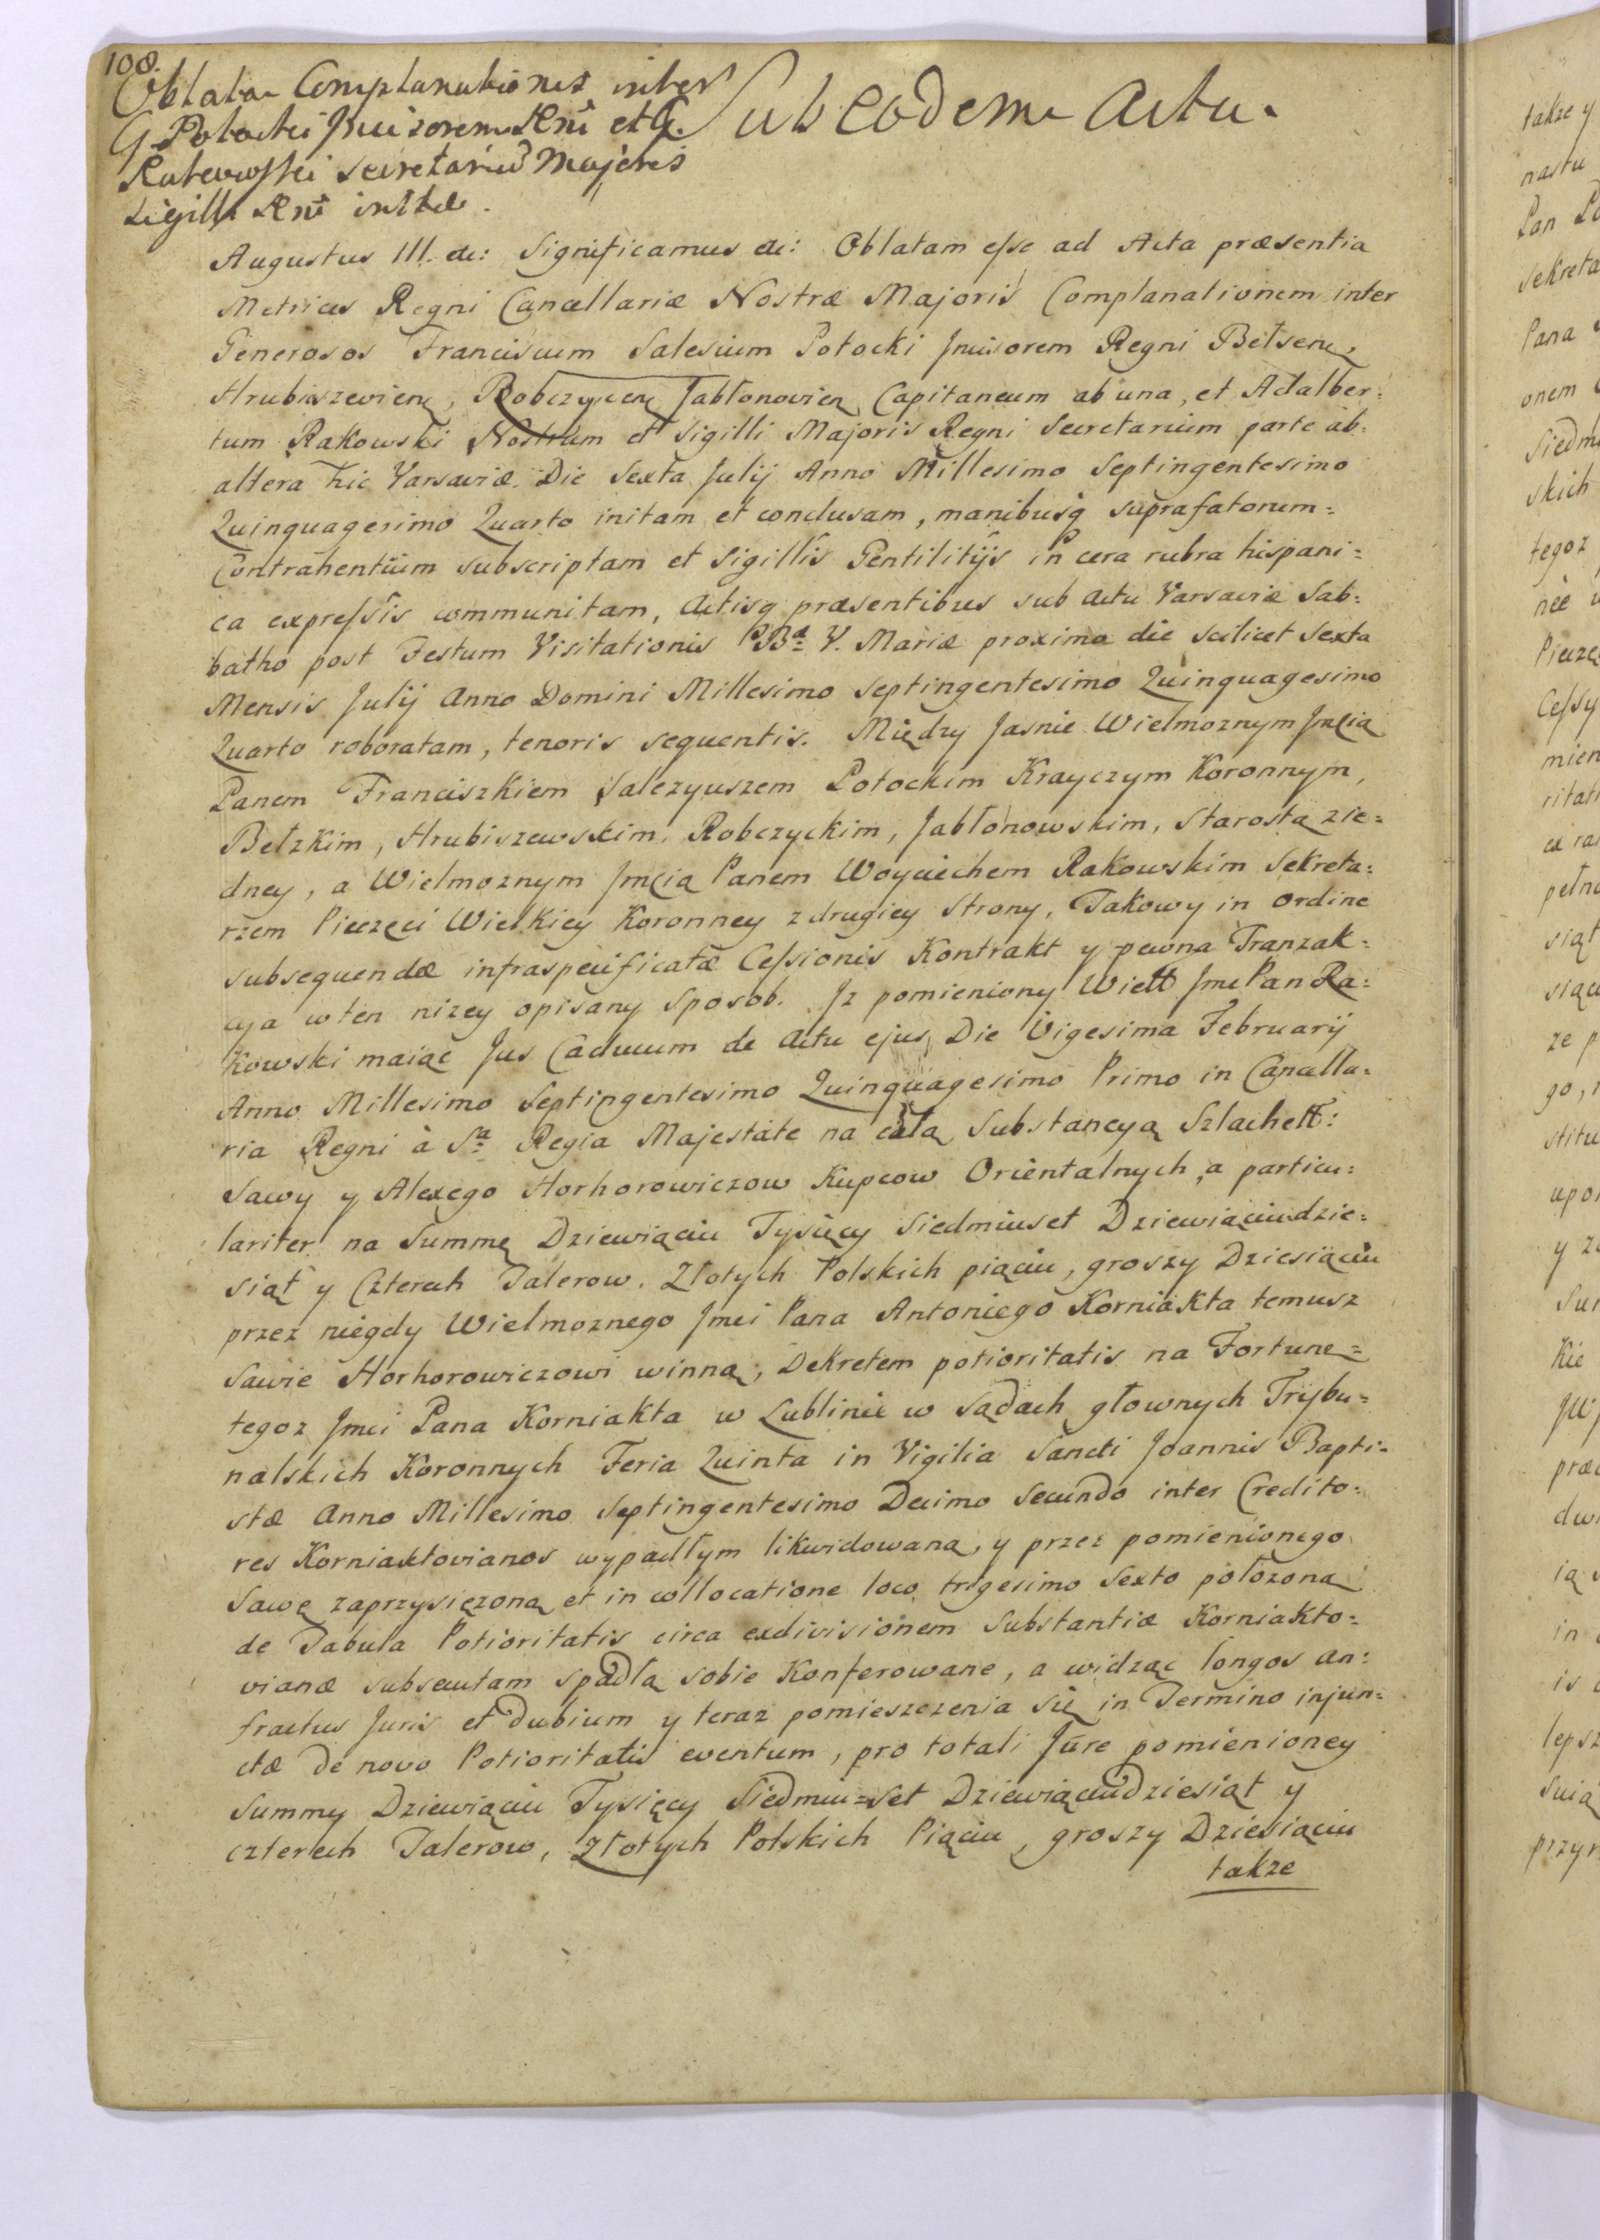 108.
Oblata Complanationis inter
G. Potocki Incisorem Rni et G.
Rakowski Secretariū Majoris
Sigilli Rni initae.
Sub eodem Actu.
Augustus III. etc: Significamus etc: Oblatam esse ad Acta præsentia
Metrices Regni Cancellariæ Nostræ Majoris Complanationem inter
Generosos Franciscum Salesium Potocki Incisorem Regni Bełsen,
Hrubiszevien, Robczycen, Jabłonovien, Capitaneum ab una, et Adalber:
tum Rakowski Nostrum et Sigilli Majoris Regni Secretarium parte ab
altera hic Varsaviæ. Die Sexta Julij Anno Millesimo Septingentesimo
Quinquagesimo Quarto initam et conclusam, manibusq suprafatorum=
Contrahentium subscriptam et Sigillis Gentilitijs in cera rubra hispani=
ca expressis communitam, Actisq præsentibus sub actu Varsaviæ Sab:
batho post Festum Visitationis Bæ V. Mariæ proximo die scilicet Sexta
Mensis Julij Anno Domini Millesimo Septingentesimo Quinquagesimo
Quarto roboratam, tenoris sequentis. Między Jasnie Wielmoznym Jmcią
Panem Franciszkiem Salezyuszem Potockim Krayczym Koronnym,
Bełzkim, Hrubiszewskim, Robczyckim, Jabłonowskim, Starostą z ie=
dney, a Wielmoznym Jmcią Panem Woyciechem Rakowskim Sekreta:
rzem Pieczęci Wielkiey Koronney z drugiey Strony, Takowy in ordine
subsequendæ infraspecificatæ Cessionis Kontrakt y pewna Tranzak=
cya w ten nizey opisany sposob. Iz pomieniony Wielt Jmc Pan Ra:
kowski maiąc Jus Caducum de Actu ejus, Die Vigesima Februarij
Anno Millesimo Septingentesimo Quinquagesimo Primo in Cancella=
ria Regni à Sa Regia Majestate na całą Substancyą Szlachett:
Sawy y Alexego Horhorowiczow Kupcow Orientalnych, a particu:
lariter na Summę Dziewiąciu Tysięcy Siedmiuset Dziewiąciudzie:
siąt y Czterech Talerow, Złotych Polskich piąciu, groszy Dziesiąciu
przez niegdy Wielmoznego Jmci Pana Antoniego Korniakta temusz
Sawie Horhorowiczowi winną, Dekretem potioritatis na Fortune=
tegoz Jmci Pana Korniakta w Lublinie w Sądach głownych Trybu=
nalskich Koronnych Feria Quinta in Vigilia Sancti Joannis Bapti=
stæ Anno Millesimo Septingentesimo Decimo Secundo inter Credito=
res Korniaktovianos wypadłym likwidowaną, y przez pomienionego
Sawę zaprzysięzoną et in collocatione loco trigesimo Sexto połozoną
de Tabula Potioritatis circa exdivisionem Substantiæ Korniakto=
vianæ subsecutam spadłą sobie Konferowane, a widząc longos an:
fractus Juris et dubium y teraz pomieszczenia się in Termino injun=
ctæ de novo Potioritatis eventum, pro totali Jure pomienioney
Summy Dziewiąciu Tysięcy Siedmiu=set Dziewiąciudziesiąt y
czterech Talerow, Złotych Polskich Piąciu, groszy Dziesiąciu
takze
takze y
Pan Po
Sekreta
Pana
onem
Siedm
skich
tegoz
Cessy
mien
ritati
pełn
siąt
ze p
go,
stitu
upo
y z
Kie
præ
in
is
lepsz
przy